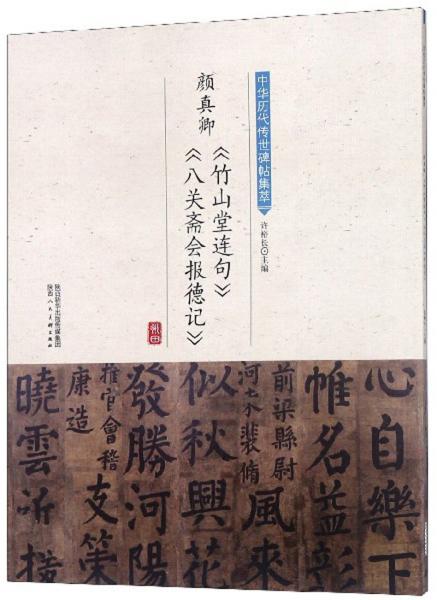 中华历代传世碑帖集萃
许裕长⊙主编
颜真卿
《竹山堂连句》
《八关斋会报德记》
陕西新华出版传媒集团
陕西人民美术出版社
心自樂下
帷名益彰
前梁縣尉
河東裴脩
風來
似秋興花
發勝河陽
推官會稽
康造
支策
曉雲近援